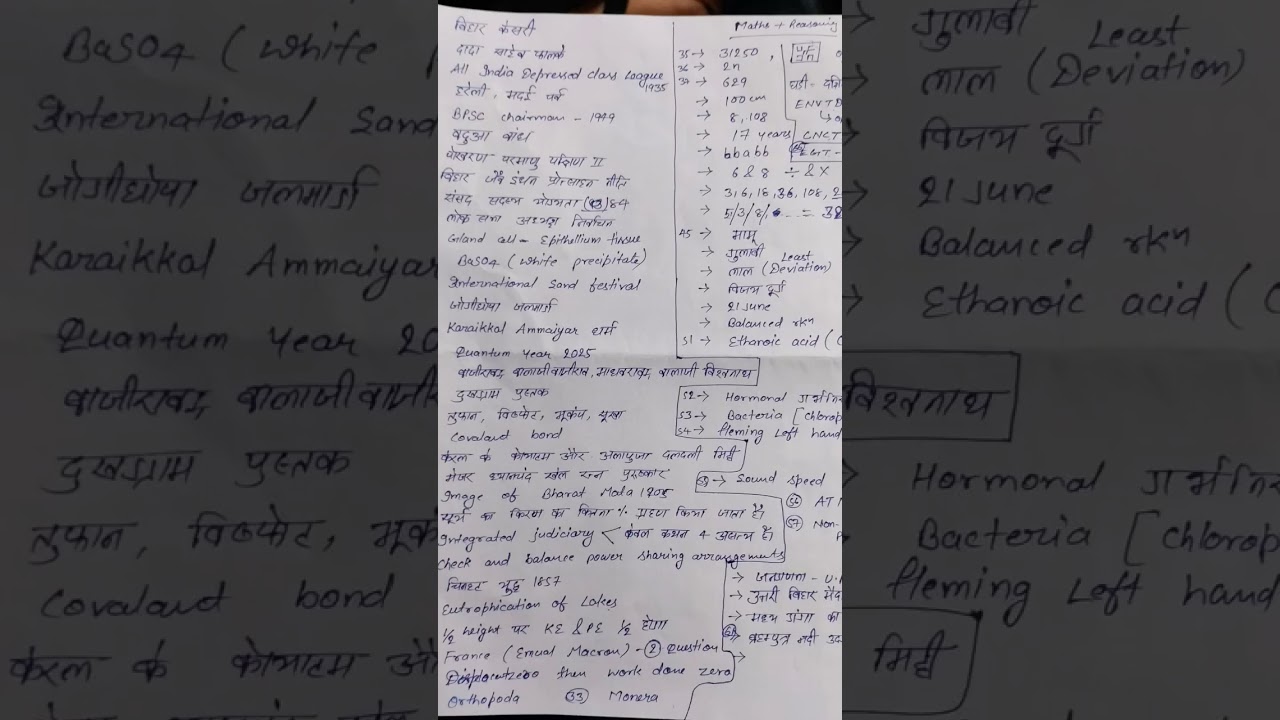 बिहार केसरी
दादा साहेब फाल्के
All India Depressed class League 1935
हरेली, मदई पर्व
BPSC chairman - 1949
बदुआ बांध
पोखरण परमाणु परीक्षण II
बिहार जैव इंधन प्रोत्साहन नीति
संसद सदस्य योग्यता 84
लोक सभा अध्यक्ष निर्वाचन
Gland cell - Epithellium tissue
BaSO4 (white precipitate)
International Sand festival
जोगीघोपा जलमार्ग
Karaikkal Ammaiyar धर्म
Quantum year 2025
बाजीराव, बालाजी बाजीराव, माधवराव, बालाजी विश्वनाथ
दुखग्राम पुस्तक
तुफान, विस्फोट, भूकंप, सूखा
Covalaut bond
केरल के कोट्टायम और अलापुजा दलदली मिट्टी
मेजर ध्यानचंद खेल रत्न पुरस्कार
Image of Bharat Mata 1905
सूर्य का किरण का कितना % ग्रहण किया जाता है।
Integrated judiciary < केवल कथन 4 असत्य है।
Check and balance power sharing arrangements
चिनहट युद्ध 1857
Eutrophication of Lakes
1/2 height पर KE & PE 1/2 होगा
France (Emual Macron) - 2 Question
then work done zero
Orthopoda 33 Monera
Maths + Reasoning
35 → 31250,
36 → 2n
37 → 629
→ 100 cm
→ 8, 108
→ 17 years
→ bbabb
→ 6 & 8 ÷ & ×
→ 3, 6, 18, 36, 108, 2
→ 5/3/8/
45 → मामू
→ गुलाबी Least
→ लाल (Deviation)
→ विजय दुर्ग
→ 21 June
→ Balanced rkn
51 → Ethanoic acid (
52 → Hormonal गर्भनि
53 → Bacteria [chlorop
54 → fleming Left hand
55 → Sound speed
56 AT
57 Non-
→ जनगणना - U.
→ उत्तरी बिहार मैद
→ मध्य गंगा का
→ ब्रह्मपुत्र नदी उद
ENVTD
CNCT
EGT -
BaSO4 (white
International Sand
जोगीघोपा जलमार्ग
Karaikkal Ammaiyar
Quantum year 20
बाजीराव, बालाजी बाजी
दुखग्राम पुस्तक
तुफान, विस्फोट, भूकं
Covalaut bond
केरल के कोट्टायम औ
→ गुलाबी Least
→ लाल (Deviation)
→ विजय दुर्ग
→ 21 June
→ Balanced rkn
→ Ethanoic acid (
विश्वनाथ
Hormonal गर्भनि
Bacteria [chlorop
fleming Left hand
मिट्टी